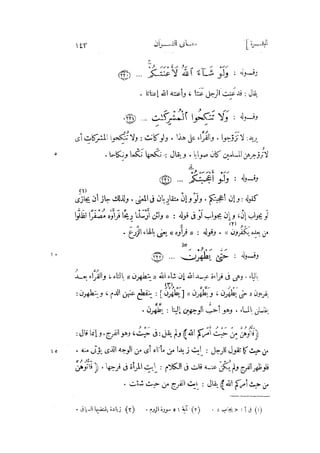 البقرة ] معانى القرآن ١٤٣
وقوله : وَلَوْ شَآءَ ٱللَّهُ لَأَعْنَتَكُمْ ... (٢٢٠)
يقال : قد عَنِت الرجل عَنَتا ، وأعنته الله إعناتا .
وقوله : وَلَا تَنكِحُوا ٱلْمُشْرِكَٰتِ ... (٢٢١)
يريد : لا تَزوّجوا . والقُرّاء على هذا . ولو كانت : ولا تُنكحوا المشركات أى
٥ لا تُزوّجوهن المسلمين كان صوابا . ويقال : نكحها نَكْحا ونِكاحا .
وقوله : وَلَوْ أَعْجَبَتْكُمْ ... (٢٢١)
كقوله : وإن أعجبتكم . ولو وإن متقاربان فى المعنى . ولذلك جاز أن يجازى
لو بجواب إن ، وإن بجواب لو فى قوله : « ولئن أرسلنا ريحا فرأوه مصفرّا لظلّوا
من بعده يكفرون » (٢) . وقوله : « فرأوه » يعنى بالهاء الزرع .
١٠ وقوله : حَتَّىٰ يَطْهُرْنَ ... (٢٢٢)
بالياء . وهى فى قراءة عبد الله إن شاء الله « يتطهرن » بالتاء ، والقرّاء بعد
يقرءون « حتى يطهرن ، ويطّهّرن » [ يطهرن ] (٣) : ينقطع عنهن الدم ، ويتطهرن :
يغتسلن بالماء . وهو أحبّ الوجهين إلينا : يطّهّرن .
( فَأْتُوهُنَّ مِنْ حَيْثُ أَمَرَكُمُ الله ) ولم يقل : فى حيث ، وهو الفرج . وإنما قال :
١٥ من حيث كما تقول للرجل : ايت زيدا من مأتاه أى من الوجه الذى يؤتى منه .
فلو ظهر الفرج ولم يُكْنَ عنه قلت فى الكلام : ايت المرأة فى فرجها . ( فأتوهنّ
من حيث أمركم الله ) يقال : ايت الفرج من حيث شئت .
(١) فى أ : « بجواب » . (٢) آية ٥١ سورة الروم . (٣) زيادة يقتضيها السياق .